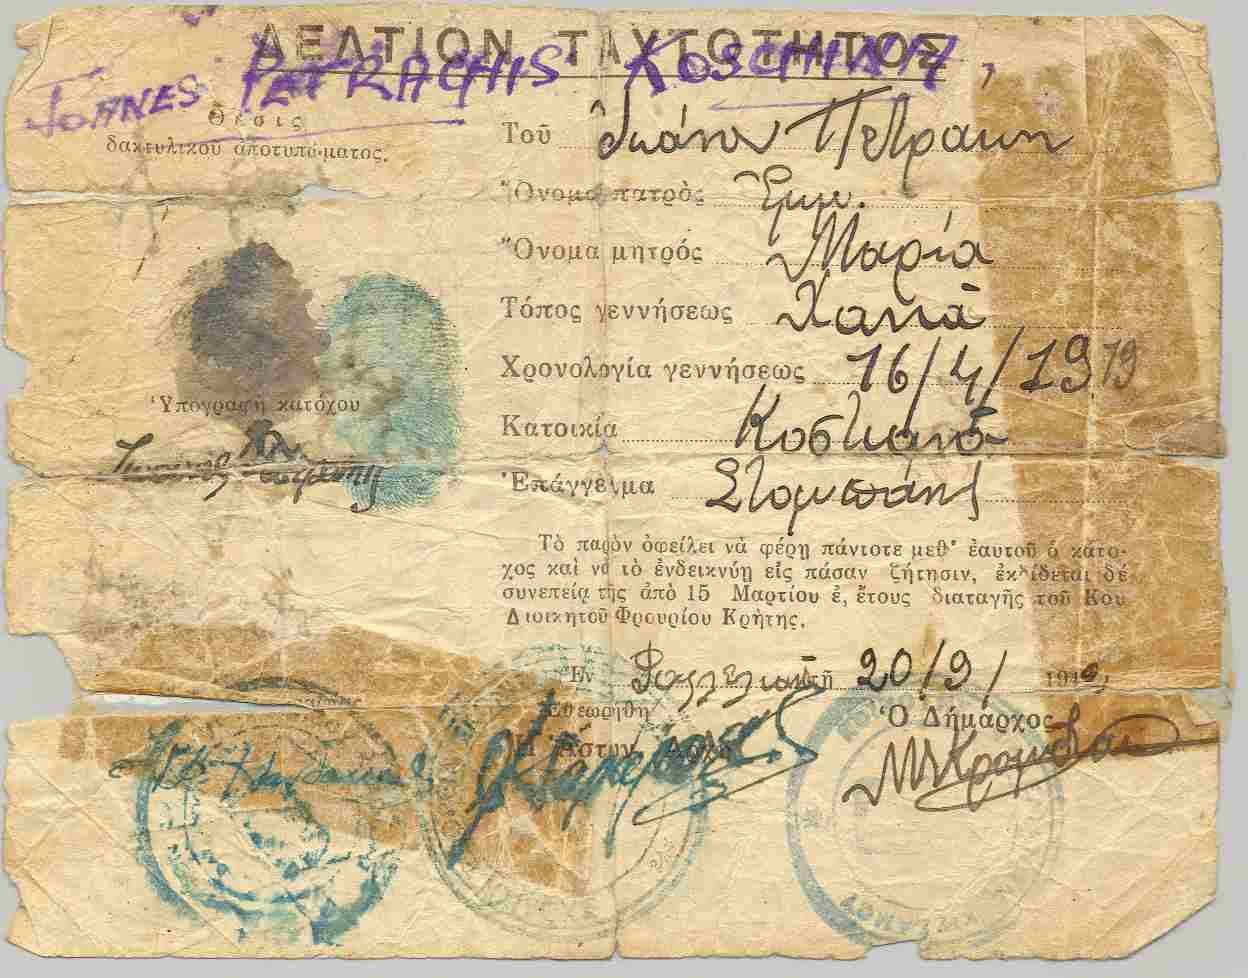 ΔΕΛΤΙΟΝ ΤΑΥΤΟΤΗΤΟΣ
JOANES PETRACHIS KOSCHINA,
Θέσις
δακτυλικοῦ ἀποτυπώματος.
Τοῦ Ἰωάνου Πετράκη
Ὄνομα πατρὸς Ἐμμ.
Ὄνομα μητρός Μαρία
Τόπος γεννήσεως Χανιά
Χρονολογία γεννήσεως 16/4/1919
Ὑπογραφὴ κατόχου
Κατοικία
Ἐπάγγελμα
Τὸ παρὸν ὀφείλει νὰ φέρῃ πάντοτε μεθ' ἑαυτοῦ ὁ κάτο-
χος καὶ νὰ τὸ ἐνδεικνύῃ εἰς πᾶσαν ζήτησιν, ἐκδίδεται δέ
συνεπείᾳ τῆς ἀπὸ 15 Μαρτίου ἐ, ἔτους διαταγῆς τοῦ Κου
Διοικητοῦ Φρουρίου Κρήτης.
Ἐν τῇ 20/9/ 194
Ἐθεωρήθη
Ὁ Δήμαρχος
Ἡ Ἀστυν. Ἀρχὴ